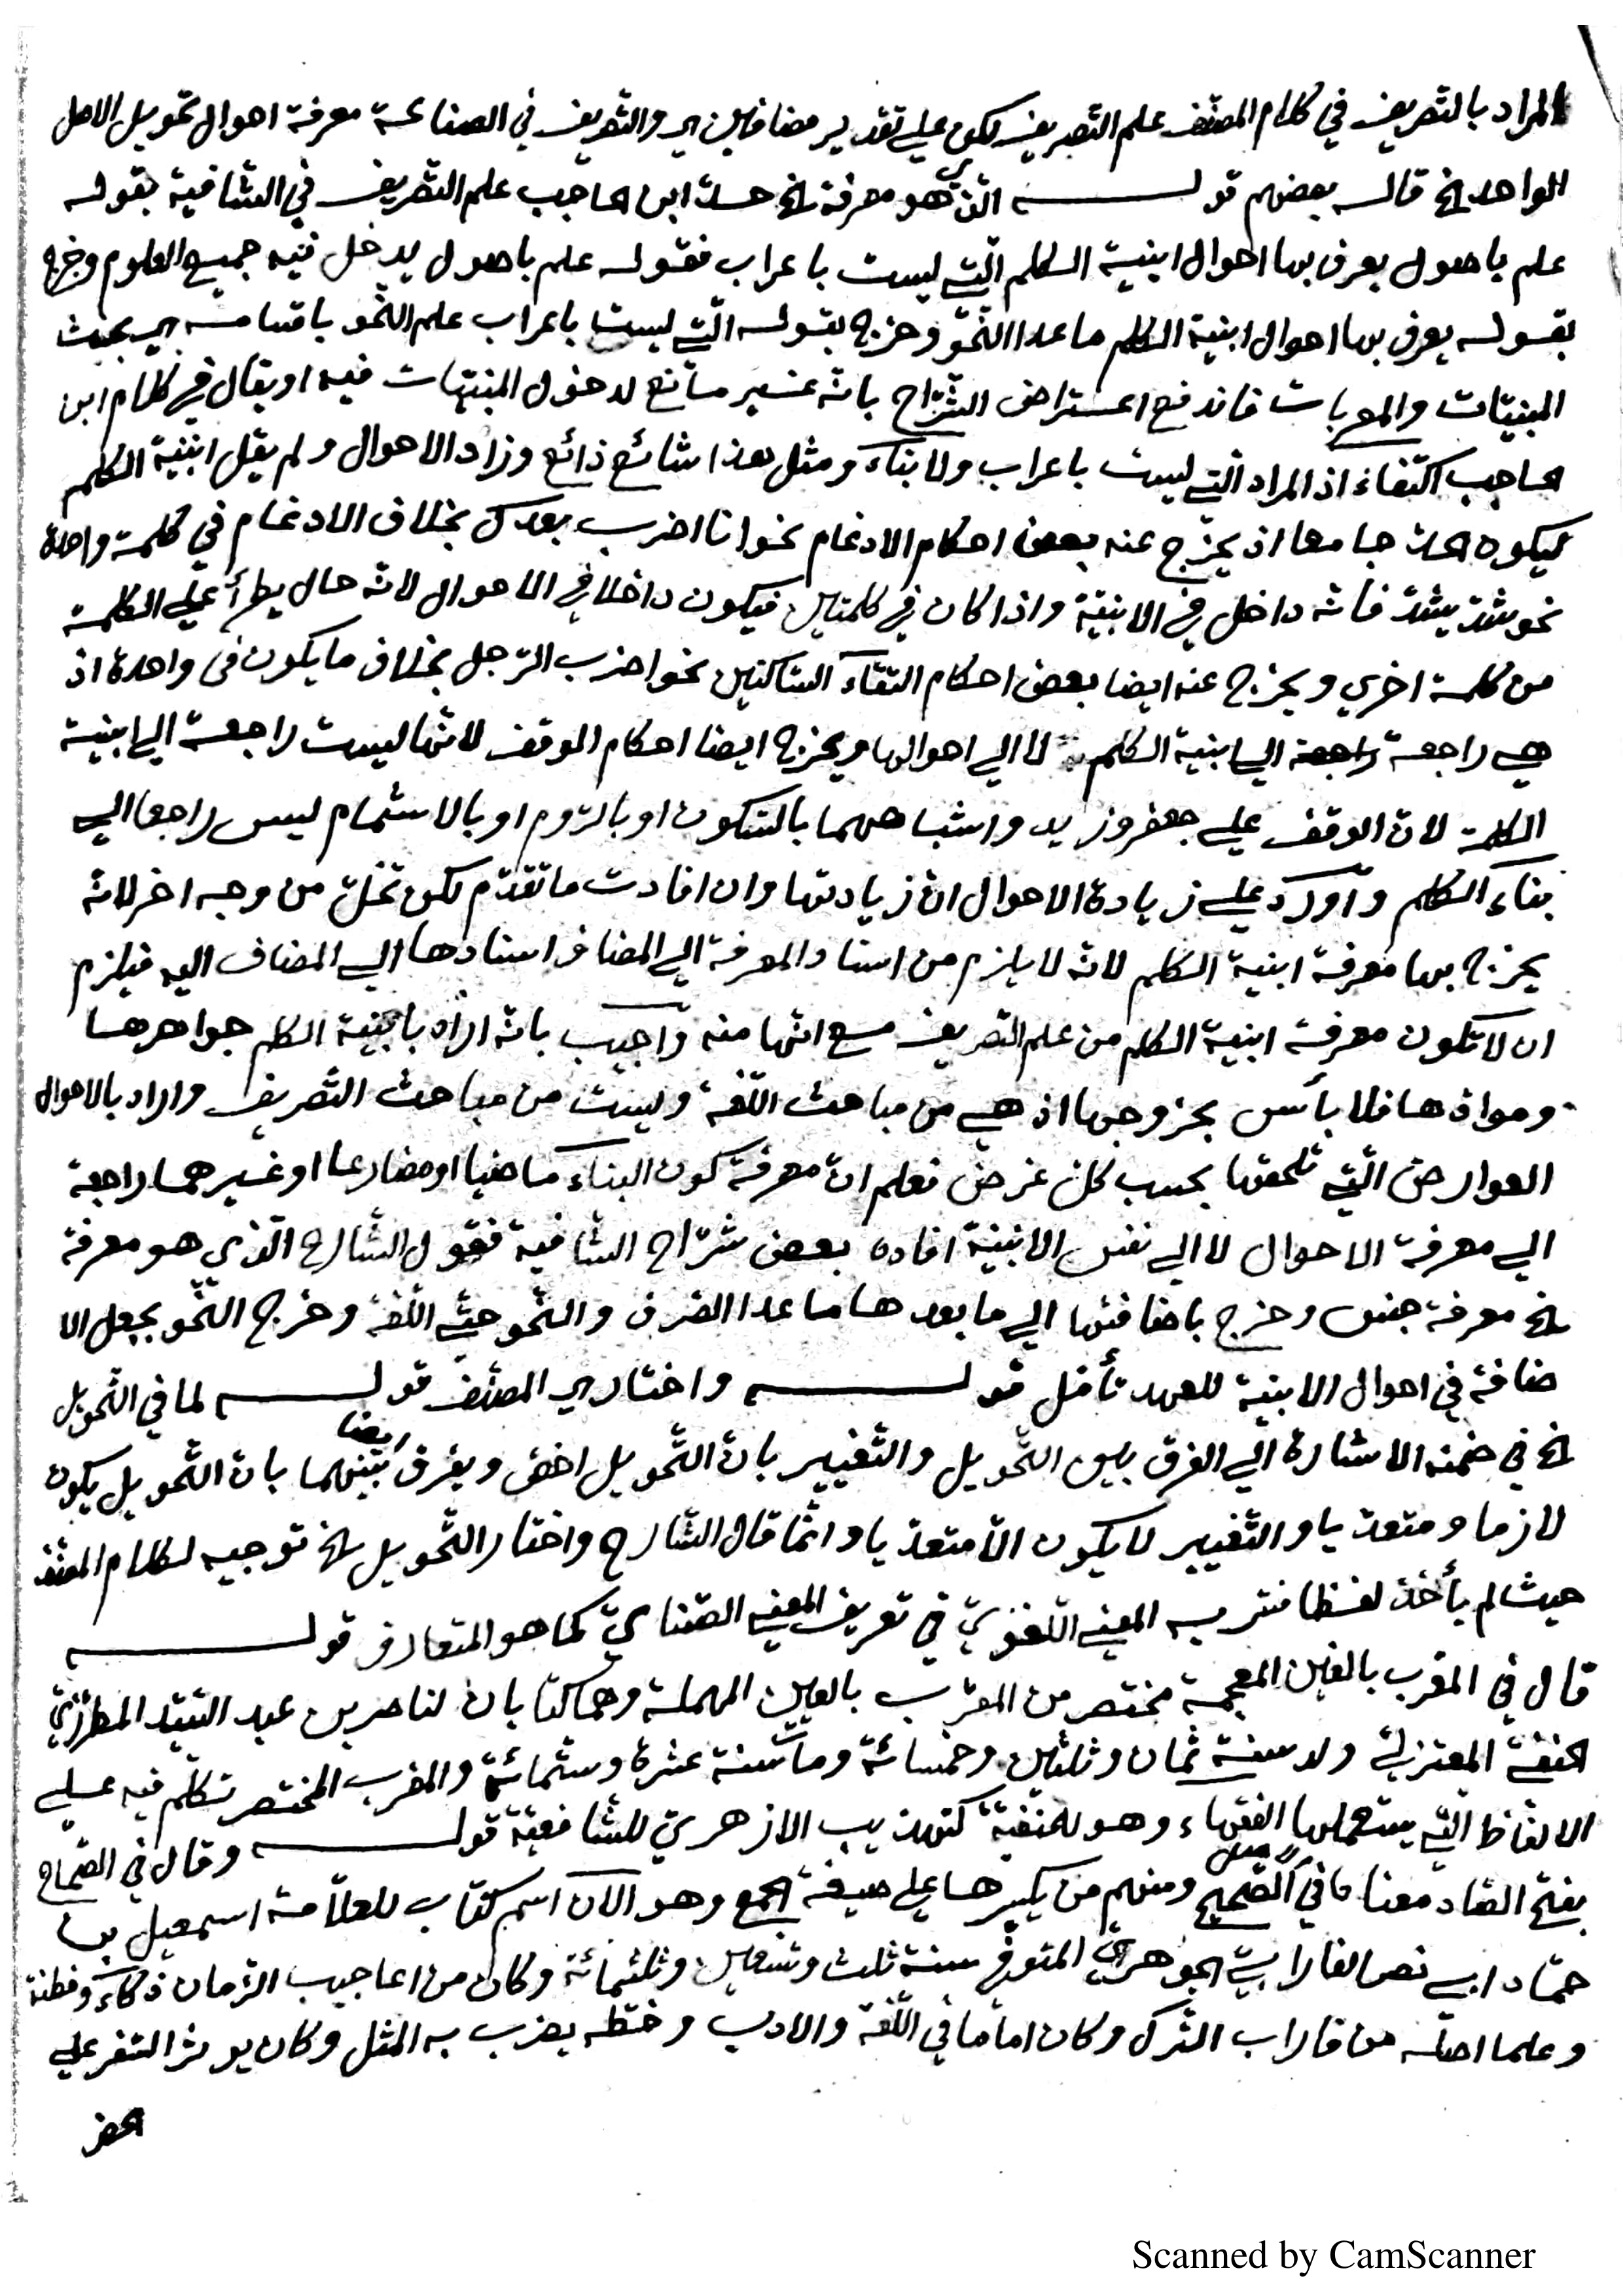 المراد بالتصريف في كلام المصنّف علم التصريف لكن علي تقدير مضافين اي والتصريف في الصناعة معرفة احوال تحويل الاصل
الواحد الخ قاله بعضهم قولـــه الذي هو معرفة الخ حدّ ابن الحاجب علم التصريف في الشافية بقوله
علم باصول يعرف بها احوال ابنية الكلم الّتي ليست باعراب فقوله علم باصول يدخل فيه جميع العلوم وخرج
بقوله يعرف بها احوال ابنية الكلم ما عدا النّحو وخرج بقوله الّتي ليست باعراب علم النّحو باقسامه اي بحيث
المبنيّات والمعربات فاندفع اعتراض الشرّاح بانّه غير مانع لدخول المبنيّات فيه او يقال في كلام ابن
الحاجب اكتفاء اذ المراد الّتي ليست باعراب ولا بناء ومثل هذا شائع ذائع وزاد الاحوال ولم يقل ابنية الكلم
ليكون الحدّ جامعا اذ يخرج عنه بعض احكام الادغام نحو انا اضرب بعدك بخلاف الادغام في كلمة واحدة
نحو شدّ يشدّ فانّه داخل في الابنية واذا كان في كلمتين فيكون داخلا في الاحوال لانّه حال يطرأ علي الكلمة
من كلمة اخري ويخرج عنه ايضا بعض احكام التقاء الساكنين نحو اضرب الرّجل بخلاف ما يكون في واحدة اذ
هي راجعة راجعة الي ابنية الكلم لا الي احوالها ويخرج ايضا احكام الوقف لانّها ليست راجعة الي ابنية
الكلمة لانّ الوقف علي جعفر وزيد واشباههما بالسّكون او بالرّوم او بالاشمام ليس راجعا الي
بناء الكلم وأورد علي زيادة الاحوال انّ زيادتها وان افادت ما تقدّم لكن تخلّ من وجه اخر لانّه
يخرج بها معرفة ابنية الكلم لانّه لا يلزم من اسناد المعرفة الي المضاف اسنادها الي المضاف اليه فيلزم
ان لا تكون معرفة ابنية الكلم من علم التصريف مع انّها منه وأجيب بانّه اراد بابنية الكلم جواهرها
وموادّها فلا بأس بخروجها اذ هي من مباحث اللّغة وليست من مباحث التّصريف واراد بالاحوال
العوارض الّتي تلحقها بحسب كلّ غرض فعلم انّ معرفة كون البناء ماضيا او مضارعا او غيرهما راجعة
الي معرفة الاحوال لا الي نفس الابنية افاده بعض شرّاح الشافية فقول الشّارح الّذي هو معرفة
الخ معرفة جنس وخرج باضافتها الي ما بعدها ما عدا الصّرف والنّحو حتّي اللّغة وخرج النّحو بجعل الا
ضافة في احوال الابنية للعهد تأمّل قولـــه واختار اي المصنّف قولـــه لما في التّحويل
الخ في ضمنه الاشارة الي الفرق بين التّحويل والتّغيير بانّ التّحويل اخصّ ويفرق بينهما ايضا بانّ التّحويل يكون
لازما ومتعدّيا والتّغيير لا يكون الاّ متعدّيا وانّما قال الشّارح واختار التّحويل الخ توجيه لكلام المصنّف
حيث لم يأخذ لفظا فسّر به المعني اللّغويّ في تعريف المعني الصّناعيّ كما هو المتعارف قولـــه
قال في المغرب بالغين المعجمة مختصر من المعرّب بالعين المهملة وهما كتابان لناصر بن عبد السّيّد المطرّزيّ
الحنفيّ المعتزليّ ولد سنة ثمان وثلثين وخمسائة ومات سنة عشرة وستّمائة والمغرب المختصر تكلّم فيه علي
الالفاظ الّتي يستعملها الفقهاء وهو للحنفيّة كتهذيب الازهريّ للشّافعيّة قولـــه وقال في الصّحاح
بفتح الصّاد معناه في الاصل الصّحيح ومنهم من يكسرها علي صيغة الجمع وهو الآن اسم كتاب للعلاّمة اسمعيل بن
حمّاد ابي نصر الفارابيّ الجوهريّ المتوفّي سنة ثلث وتسعين وثلثمائة وكان من اعاجيب الزّمان ذكاء وفطنة
وعلما اصله من فاراب الترك وكان اماما في اللّغة والادب وخطّه يضرب به المثل وكان يوثر السّفر علي
الحضر
Scanned by CamScanner